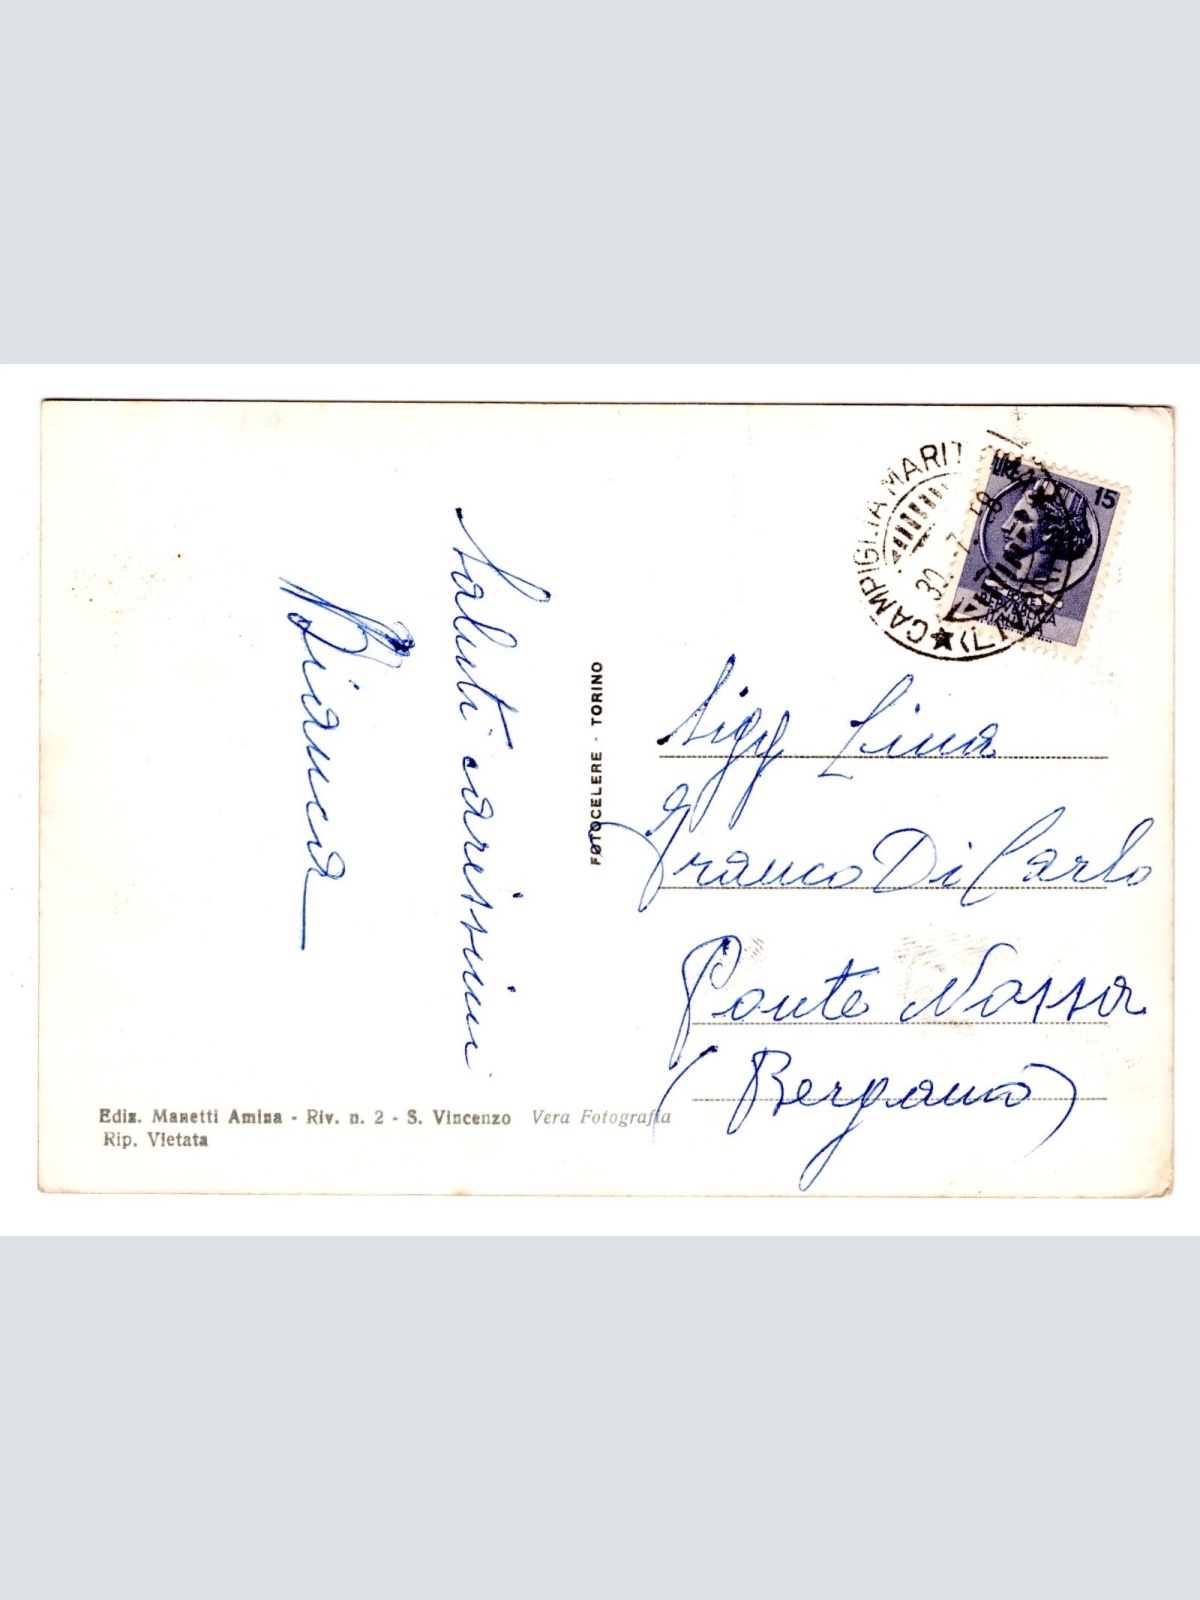 Saluti carissimi
Bianca
FOTOCELERE - TORINO
Ediz. Manetti Amina - Riv. n. 2 - S. Vincenzo Vera Fotografia
Rip. Vietata
CAMPIGLIA MARIT
(LI)
LIRE 15
REPUBBLICA
ITALIANA
Sigg Lina
Franco Di Carlo
Ponte Nossa
(Bergamo)